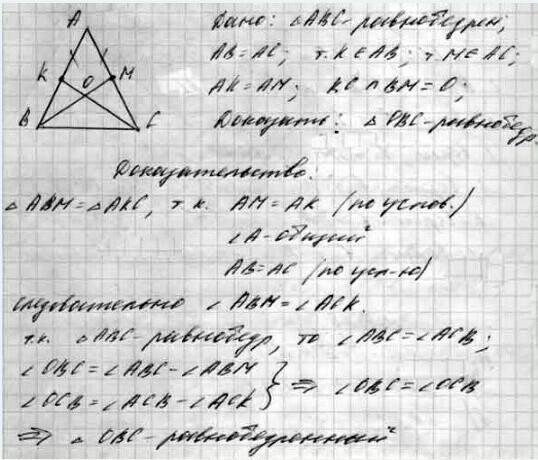 A
K O M
B C
Дано: △ABC - равнобедрен;
AB = AC; т. K ∈ AB; т. M ∈ AC;
AK = AM; KC ∩ BM = O;
Доказать: △OBC - равнобедр.
Доказательство.
△ABM = △AKC, т.к. AM = AK (по услов.)
∠A - общий
AB = AC (по усл-ю)
следовательно ∠ABM = ∠ACK.
т.к. △ABC - равнобедр, то ∠ABC = ∠ACB;
∠OBC = ∠ABC - ∠ABM
∠OCB = ∠ACB - ∠ACK } ⇒ ∠OBC = ∠OCB
⇒ △OBC - равнобедренный